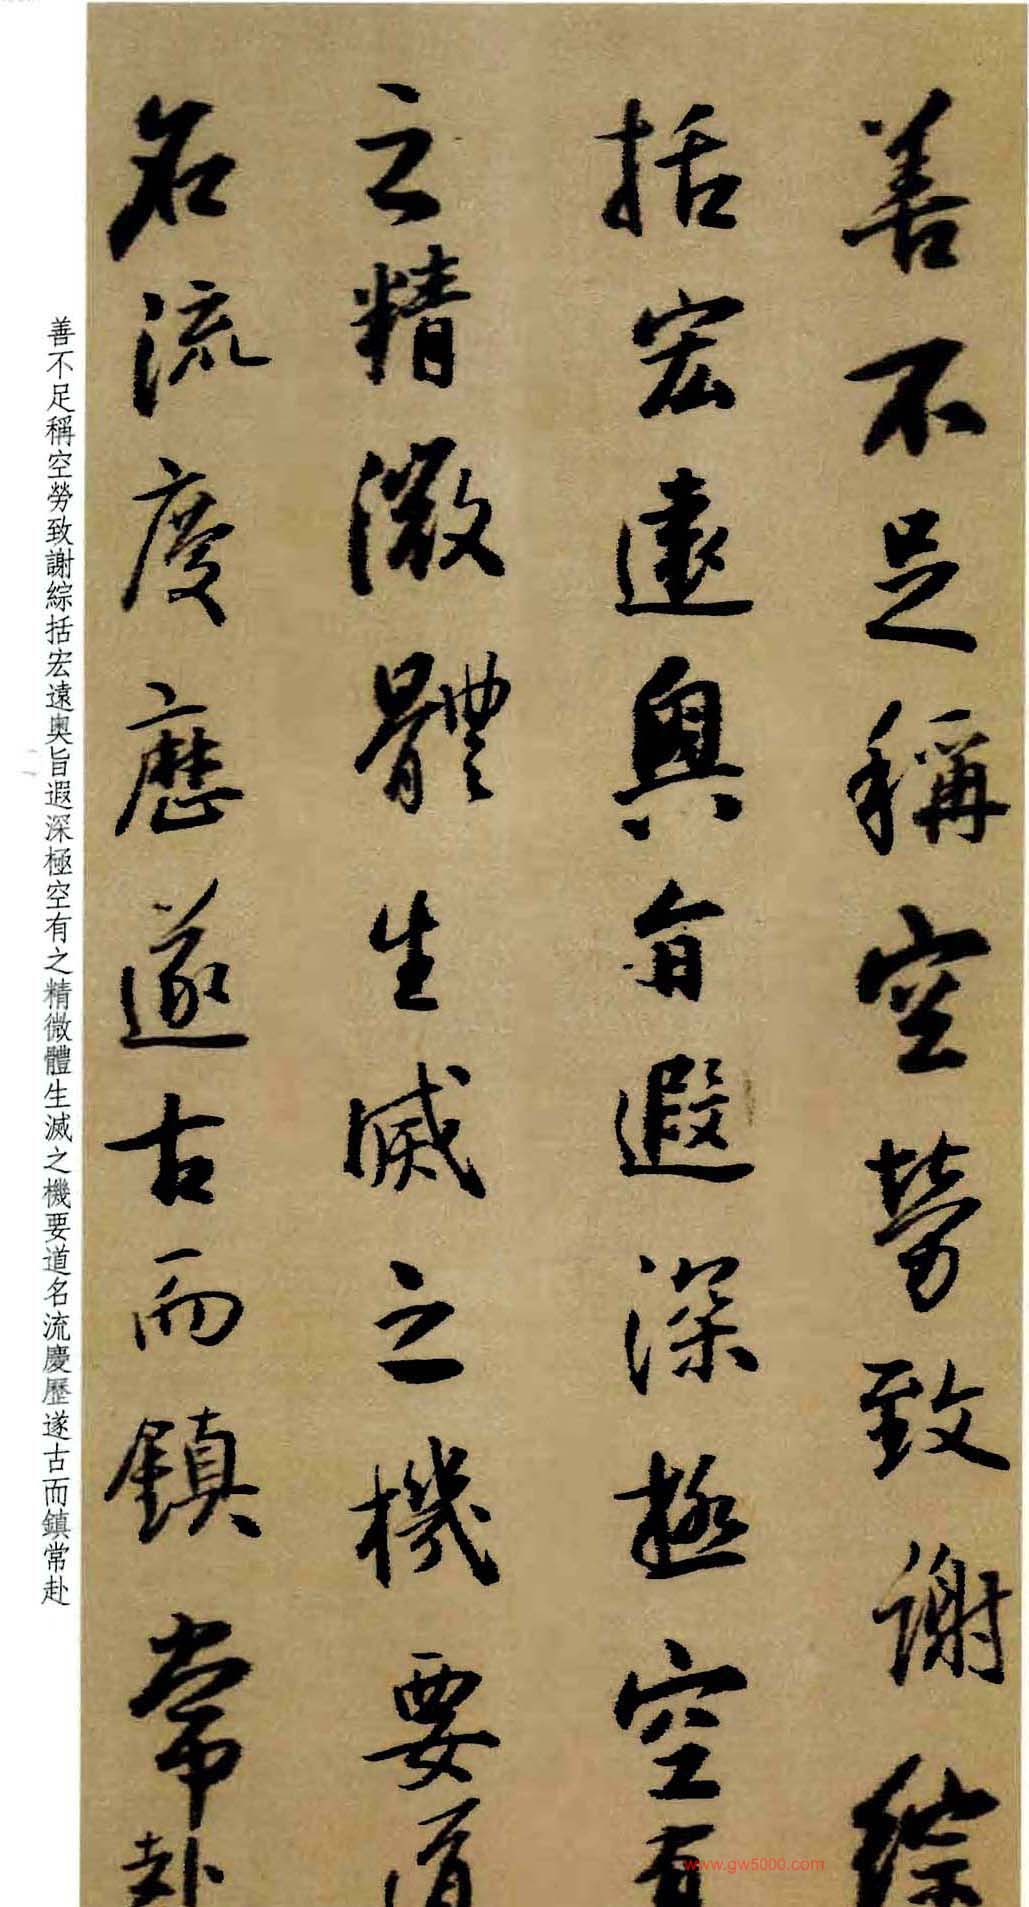 善不足稱空勞致謝綜
括宏遠奧旨遐深極空有
之精微體生滅之機要道
名流慶歷遂古而鎮常赴
善不足稱空勞致謝綜括宏遠奧旨遐深極空有之精微體生滅之機要道名流慶歷遂古而鎮常赴
www.gw5000.com